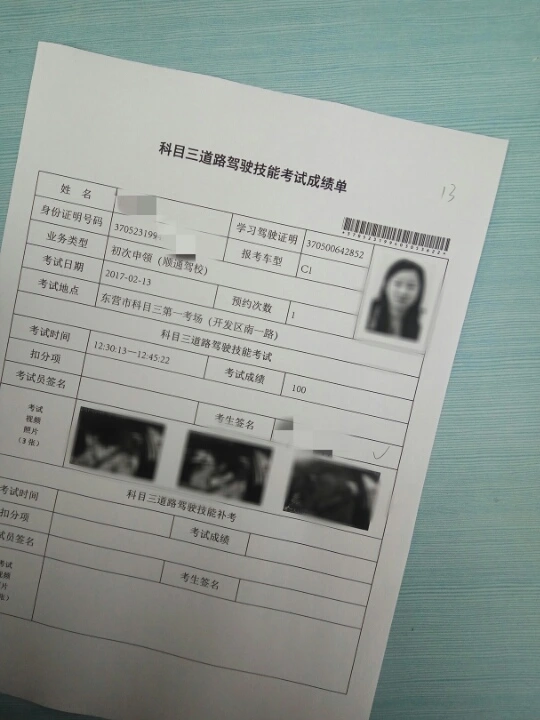 科目三道路驾驶技能考试成绩单
13
姓 名
身份证明号码 370523199 学习驾驶证明 370500642852
业务类型 初次申领（顺通驾校） 报考车型 C1
考试日期 2017-02-13 预约次数 1
考试地点 东营市科目三第一考场（开发区南一路）
科目三道路驾驶技能考试
考试时间 12:30:13～12:45:22 考试成绩 100
扣分项
考试员签名 考生签名
考试
视频
照片
（3 张）
科目三道路驾驶技能补考
考试时间 考试成绩
扣分项
试员签名 考生签名
考试
视频
片
张）